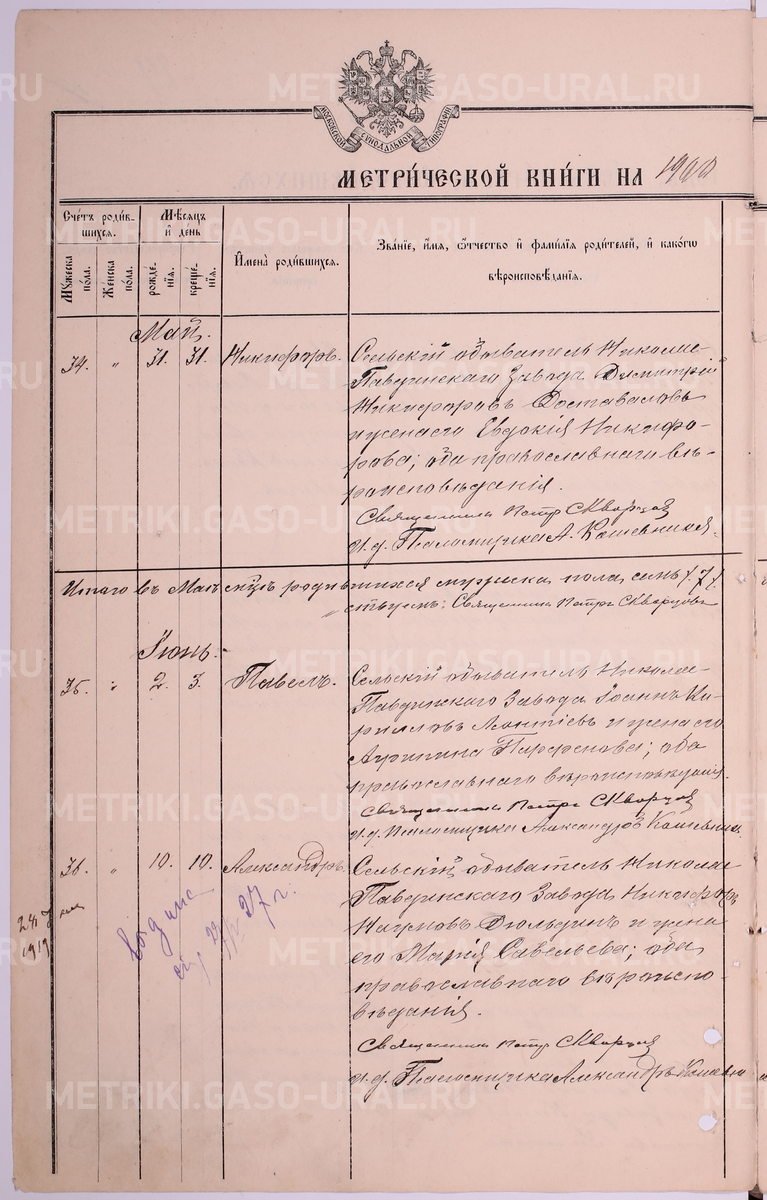 МОСКОВСКОЙ СѴНОДАЛЬНОЙ ТИПОГРАФІИ
МЕТРИ́ЧЕСКОЙ КНИ́ГИ НА 1900
Сче́тъ роди́в-
шихся.
Мѣ́сяцъ
и҆ де́нь
И҆мена̀ роди́вшихся.
Зва́ніе, и҆́мя, ѻ҆́тчество и҆ фами́лія роди́телей, и҆ како́гѡ
вѣроисповѣ́данія.
Мꙋ́жеска
по́ла.
Же́нска
по́ла.
рожде́-
нія.
креще́-
нія.
Май.
34. " 31. 31. Никифоръ. Сельскій обыватель Николае-
Павдинскаго Завода Димитрій
Никифоровъ Доставаловъ
и жена его Евдокія Никифо-
рова; оба православнаго вѣ-
роисповѣданія.
Священникъ Петръ Скварцов
И. д. Псаломщика А. Кошевников
Итого въ Маѣ мцѣ родившихся мужеска пола семь /7/
Священникъ Петръ Скварцовъ
Іюнь.
35. " 2. 3. Павелъ. Сельскій обыватель Николае-
Павдинскаго Завода Іоаннъ Ки-
рилловъ Леонтіевъ и жена его
Агрипина Парфенова; оба
православнаго вѣроисповѣданія.
Священникъ Петръ Скварцов
И. д. Псаломщика Александръ
36. " 10. 10. Александръ. Сельскій обыватель Николае-
Павдинскаго Завода Никифоръ
Дюльдинъ и жена
его Марія Савельева; оба
православнаго вѣроиспо-
вѣданія.
Священникъ Петръ Скварцов
И. д. Псаломщика Александръ
1919
37 г.
METRIKI.GASO-URAL.RU